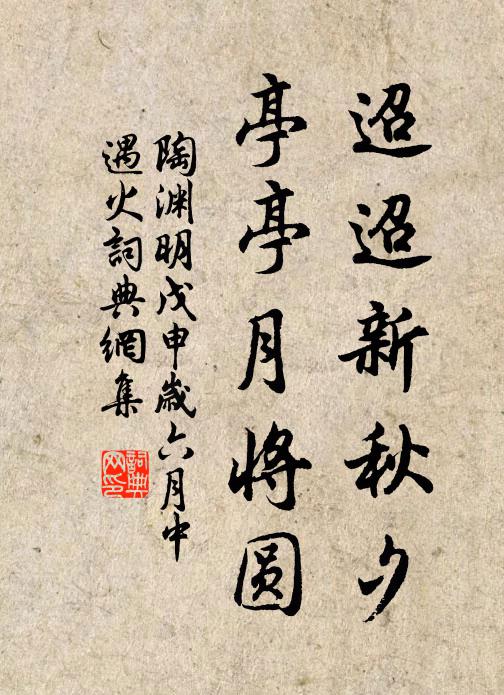 迢迢新秋夕
亭亭月将圆
陶渊明戊申歲六月中
遇火詞典網集
詞典
网印